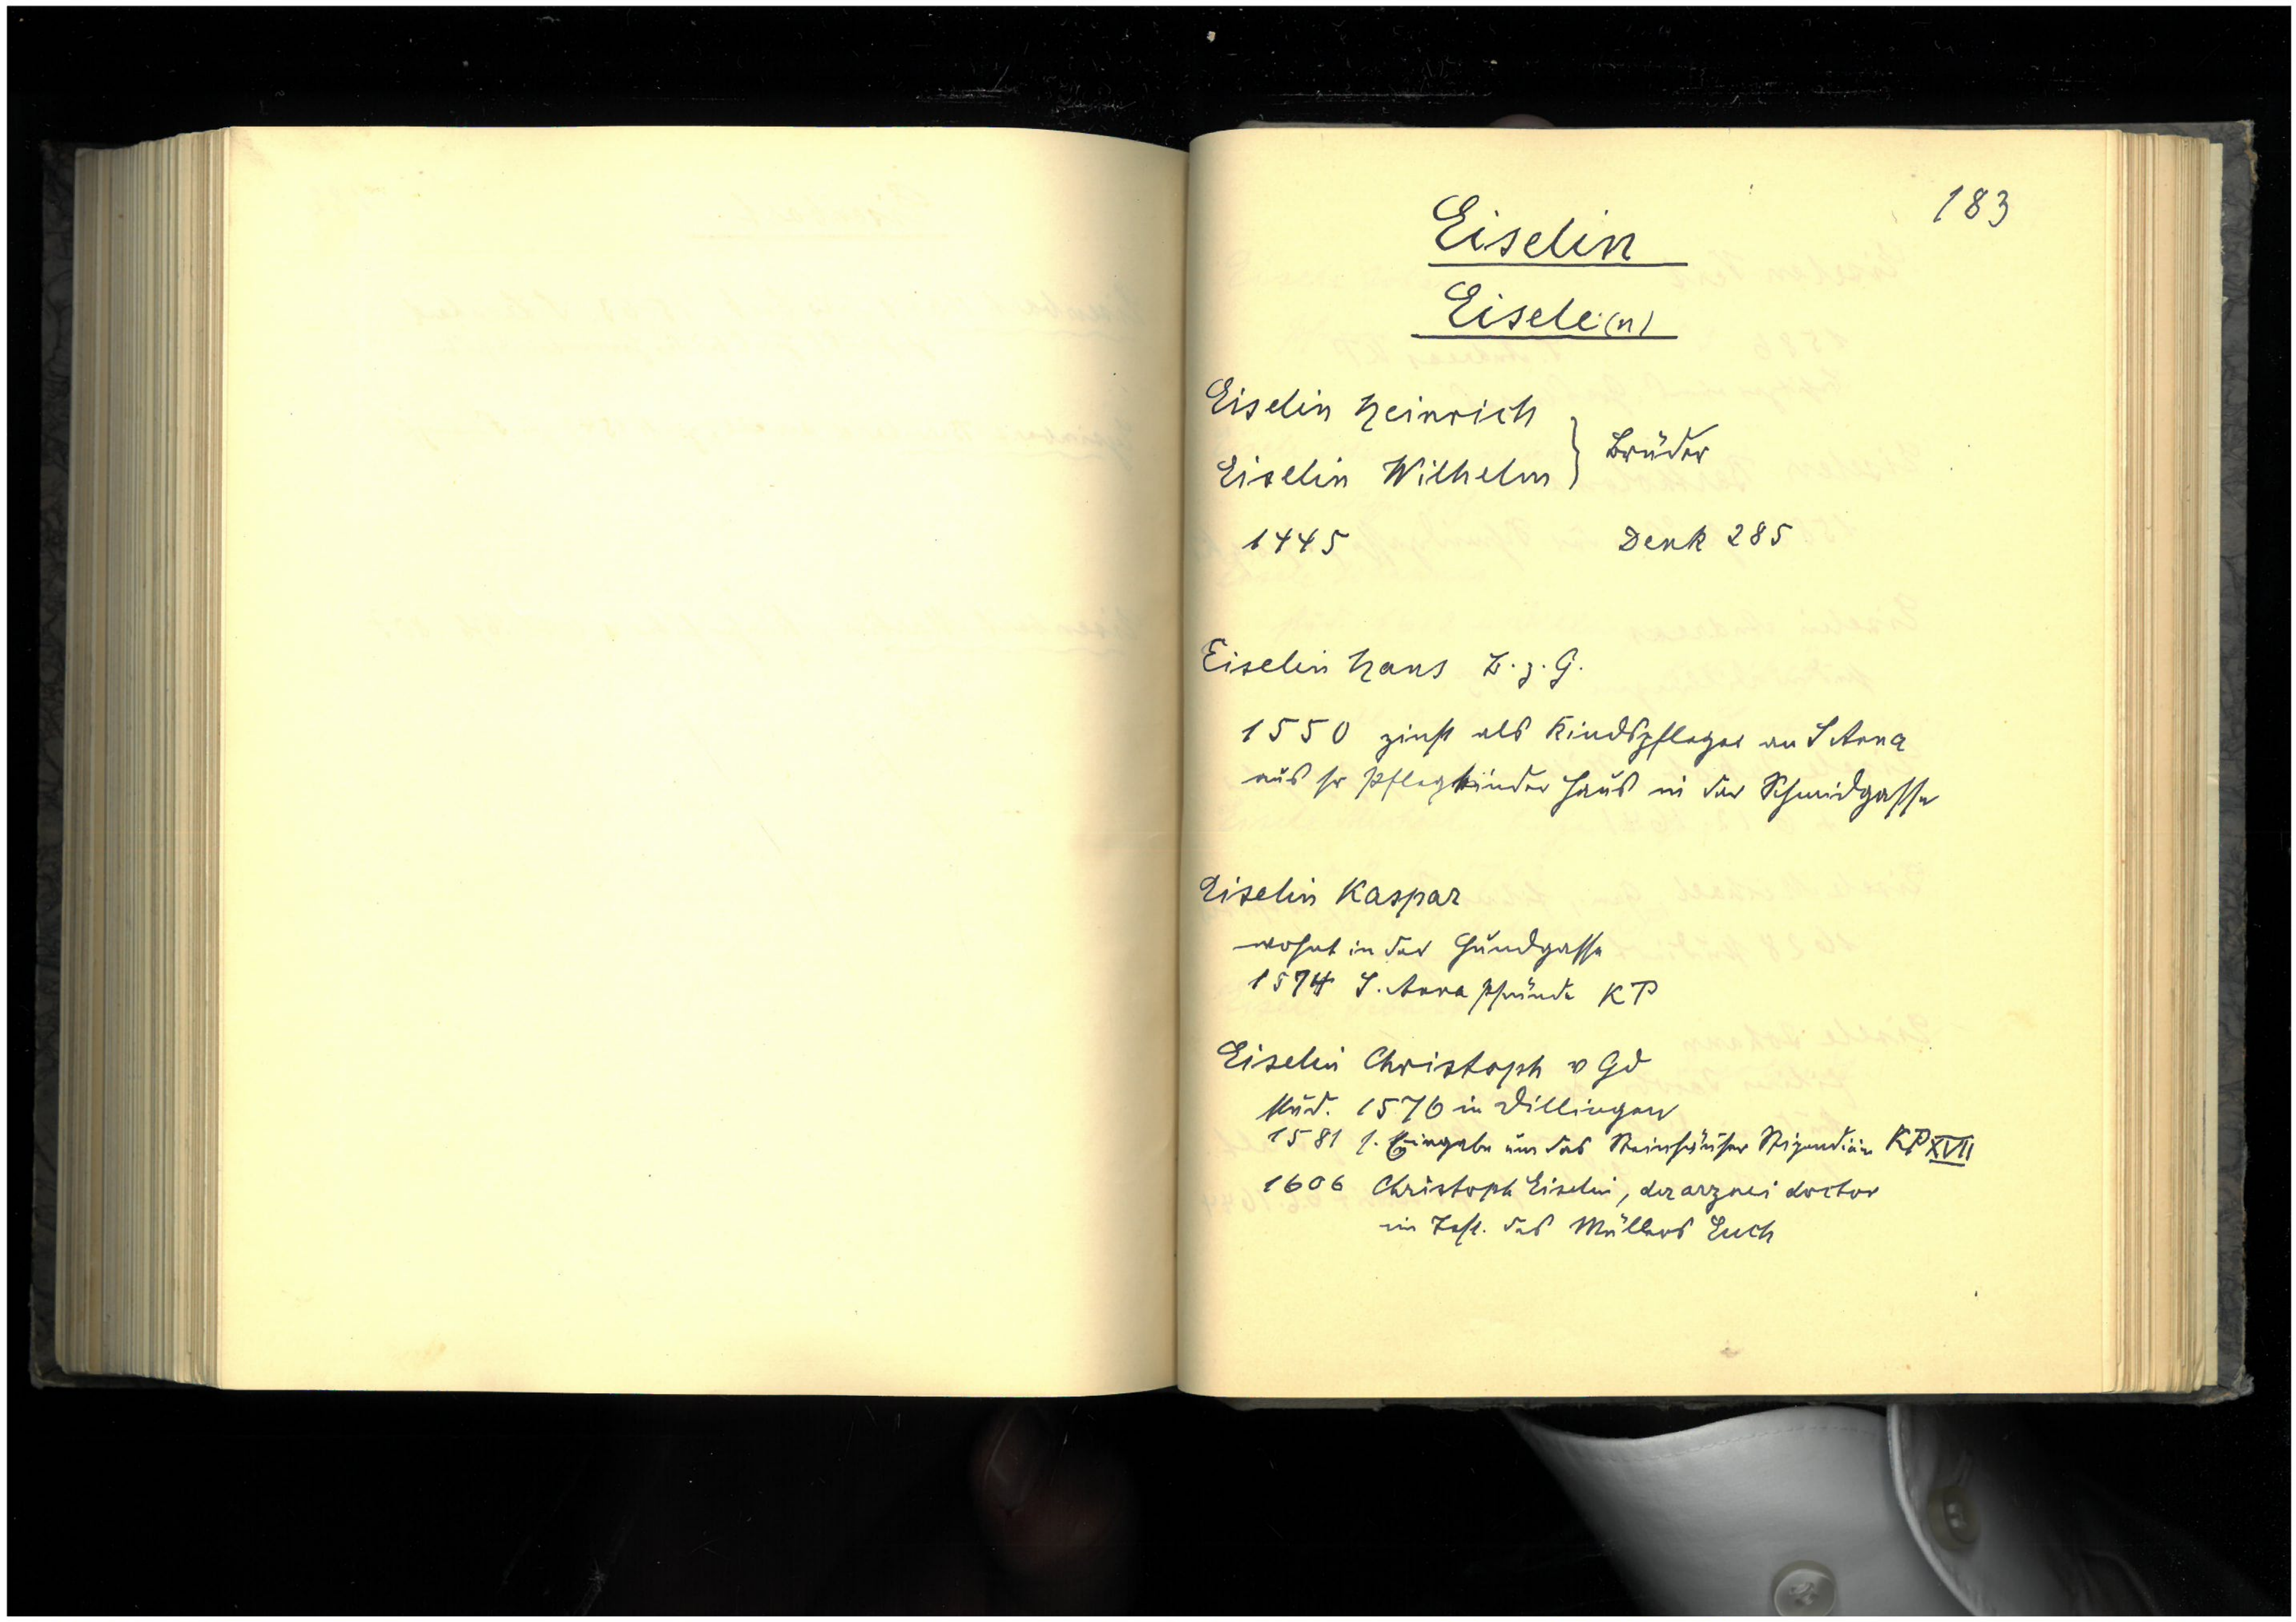 183
Eiselin
Eisele(n)
Eiselin Heinrich
Eiselin Wilhelm } Brüder
1445 Denk 285
Eiselin Hans B. z. G.
1550 zinst als Kindspfleger an S Anna
aus sr Pflegkinder Haus in der Schmidgasse
Eiselin Kaspar
wohnt in der Hundgasse
1574 S. Anna Pfründe KP
Eiselin Christoph v Gd
stud. 1576 in Dillingen
1581 s. Eingabe um das Steinhäuser Stipendium KP XVII
1606 Christoph Eiselin, der arznei doctor
im Test. des Müllers Euch